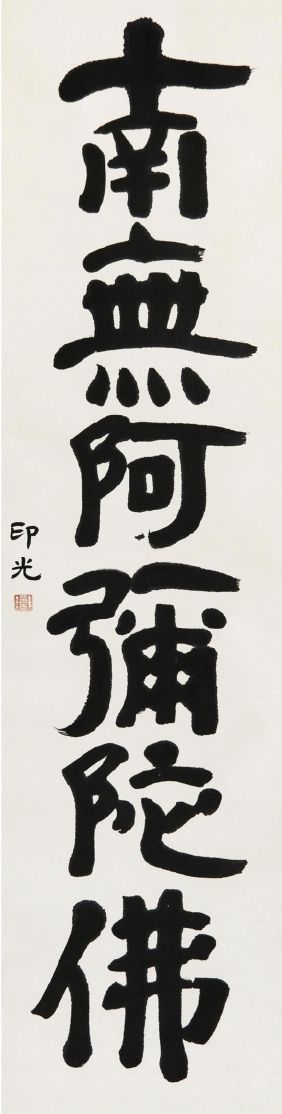 南無阿彌陀佛
印光